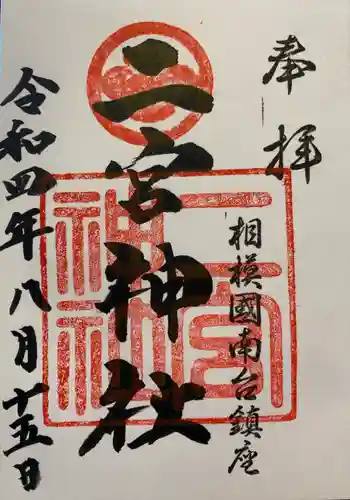 奉拝
相模國南台鎮座
二宮神社
令和四年八月十五日
二宮神社